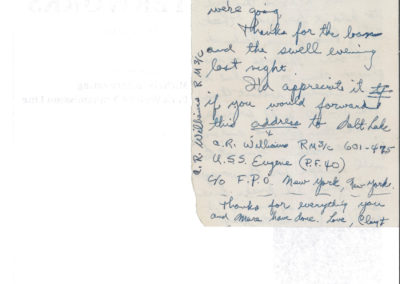 we're going.
Thanks for the loan
and the swell evening
last night.
I'd apprecite it
if you would forward
this address to Salt Lake
A.R. Williams RM3/c 631-475
U.S.S. Eugene (P.F. 40)
c/o F.P.O. New York, New York.
Thanks for everything you
and have done. Love, Clayt
A. R. Williams R M 3/c